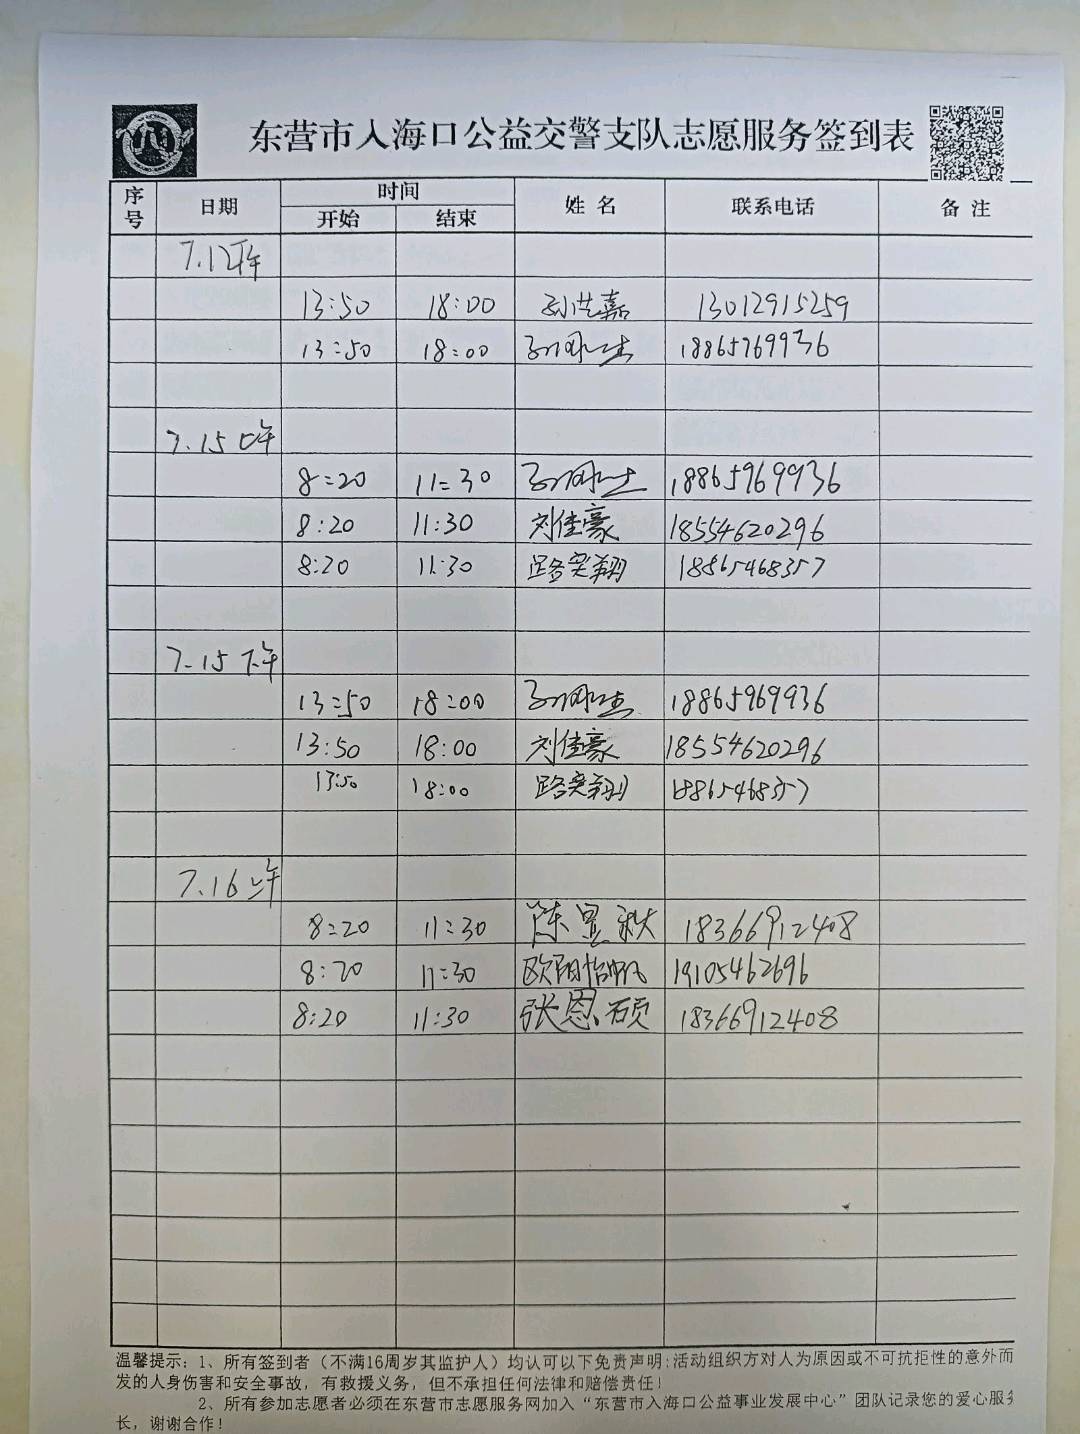 东营市入海口公益交警支队志愿服务签到表
序号 日期 时间 姓名 联系电话 备注
开始 结束
7.12下午
13:50 18:00 孙洪嘉 13012915259
13:50 18:00 18865969936
7.15上午
8:20 11:30 18865969936
8:20 11:30 刘佳豪 18554620296
8:20 11:30 路奕翔 18865468357
7.15下午
13:50 18:00 18865969936
13:50 18:00 刘佳豪 18554620296
13:50 18:00 路奕翔 18865468357
7.16上午
8:20 11:30 陈昱秋 18366912408
8:20 11:30 欧阳怡帆 19105462696
8:20 11:30 张恩硕 18366912408
温馨提示：1、所有签到者（不满16周岁其监护人）均认可以下免责声明:活动组织方对人为原因或不可抗拒性的意外而
发的人身伤害和安全事故，有救援义务，但不承担任何法律和赔偿责任！
2、所有参加志愿者必须在东营市志愿服务网加入“东营市入海口公益事业发展中心”团队记录您的爱心服务
长，谢谢合作！